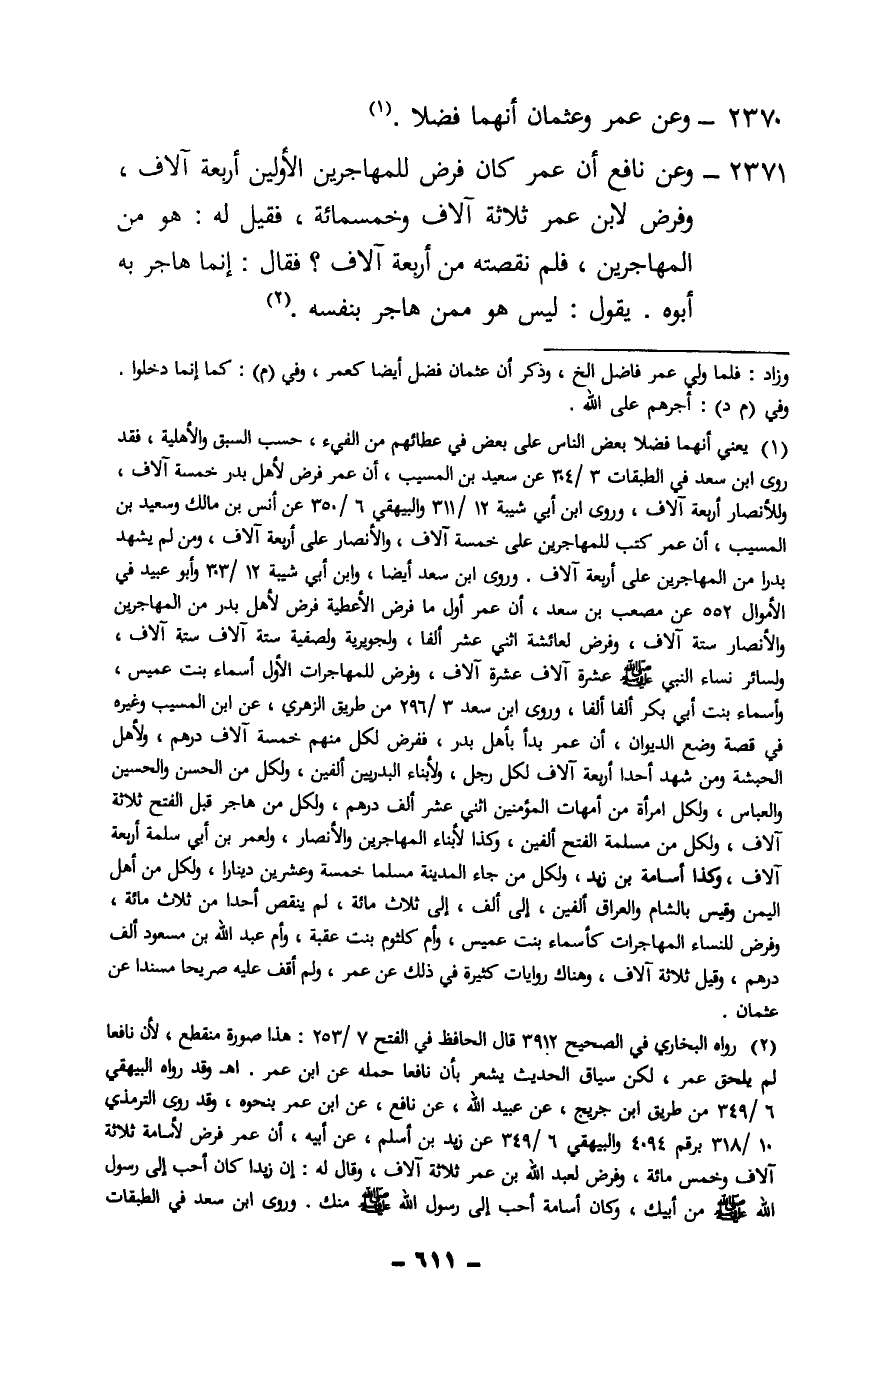 ٢٣٧٠ ــ وعن عمر وعثمان أنهما فضلا .(١)
٢٣٧١ ــ وعن نافع أن عمر كان فرض للمهاجرين الأولين أربعة آلاف ،
وفرض لابن عمر ثلاثة آلاف وخمسمائة ، فقيل له : هو من
المهاجرين ، فلم نقصته من أربعة آلاف ؟ فقال : إنما هاجر به
أبوه . يقول : ليس هو ممن هاجر بنفسه .(٢)
وزاد : فلما ولي عمر فاضل الخ ، وذكر أن عثمان فضل أيضا كعمر ، وفي (م) : كما إنما دخلوا .
وفي (م د) : أجرهم على الله .
(١) يعني أنهما فضلا بعض الناس على بعض في عطائهم من الفيء ، حسب السبق والأهلية ، فقد
روى ابن سعد في الطبقات ٣ /٣٠٤ عن سعيد بن المسيب ، أن عمر فرض لأهل بدر خمسة آلاف ،
وللأنصار أربعة آلاف ، وروى ابن أبي شيبة ١٢ /٣١١ والبيهقي ٦ /٣٥٠ عن أنس بن مالك وسعيد بن
المسيب ، أن عمر كتب للمهاجرين على خمسة آلاف ، والأنصار على أربعة آلاف ، ومن لم يشهد
بدرا من المهاجرين على أربعة آلاف . وروى ابن سعد أيضا ، وابن أبي شيبة ١٢ /٣٠٣ وأبو عبيد في
الأموال ٥٥٢ عن مصعب بن سعد ، أن عمر أول ما فرض الأعطية فرض لأهل بدر من المهاجرين
والأنصار ستة آلاف ، وفرض لعائشة اثني عشر ألفا ، ولجويرية ولصفية ستة آلاف ستة آلاف ،
ولسائر نساء النبي ﷺ عشرة آلاف عشرة آلاف ، وفرض للمهاجرات الأول أسماء بنت عميس ،
وأسماء بنت أبي بكر ألفا ألفا ، وروى ابن سعد ٣ /٢٩٦ من طريق الزهري ، عن ابن المسيب وغيره
في قصة وضع الديوان ، أن عمر بدأ بأهل بدر ، ففرض لكل منهم خمسة آلاف درهم ، ولأهل
الحبشة ومن شهد أحدا أربعة آلاف لكل رجل ، ولأبناء البدريين ألفين ، ولكل من الحسن والحسين
والعباس ، ولكل امرأة من أمهات المؤمنين اثني عشر ألف درهم ، ولكل من هاجر قبل الفتح ثلاثة
آلاف ، ولكل من مسلمة الفتح ألفين ، وكذا لأبناء المهاجرين والأنصار ، ولعمر بن أبي سلمة أربعة
آلاف ، وكذا أسامة بن زيد ، ولكل من جاء المدينة مسلما خمسة وعشرين دينارا ، ولكل من أهل
اليمن وقيس بالشام والعراق ألفين ، إلى ألف ، إلى ثلاث مائة ، لم ينقص أحدا من ثلاث مائة ،
وفرض للنساء المهاجرات كأسماء بنت عميس ، وأم كلثوم بنت عقبة ، وأم عبد الله بن مسعود ألف
درهم ، وقيل ثلاثة آلاف ، وهناك روايات كثيرة في ذلك عن عمر ، ولم أقف عليه صريحا مسندا عن
عثمان .
(٢) رواه البخاري في الصحيح ٣٩١٢ قال الحافظ في الفتح ٧ /٢٥٣ : هذا صورة منقطع ، لأن نافعا
لم يلحق عمر ، لكن سياق الحديث يشعر بأن نافعا حمله عن ابن عمر . اهـ وقد رواه البيهقي
٦ /٣٤٩ من طريق ابن جريج ، عن عبيد الله ، عن نافع ، عن ابن عمر بنحوه ، وقد روى الترمذي
١٠ /٣١٨ برقم ٤٠٩٤ والبيهقي ٦ /٣٤٩ عن زيد بن أسلم ، عن أبيه ، أن عمر فرض لأسامة ثلاثة
آلاف وخمس مائة ، وفرض لعبد الله بن عمر ثلاثة آلاف ، وقال له : إن زيدا كان أحب إلى رسول
الله ﷺ من أبيك ، وكان أسامة أحب إلى رسول الله ﷺ منك . وروى ابن سعد في الطبقات
ــ ٦١١ ــ